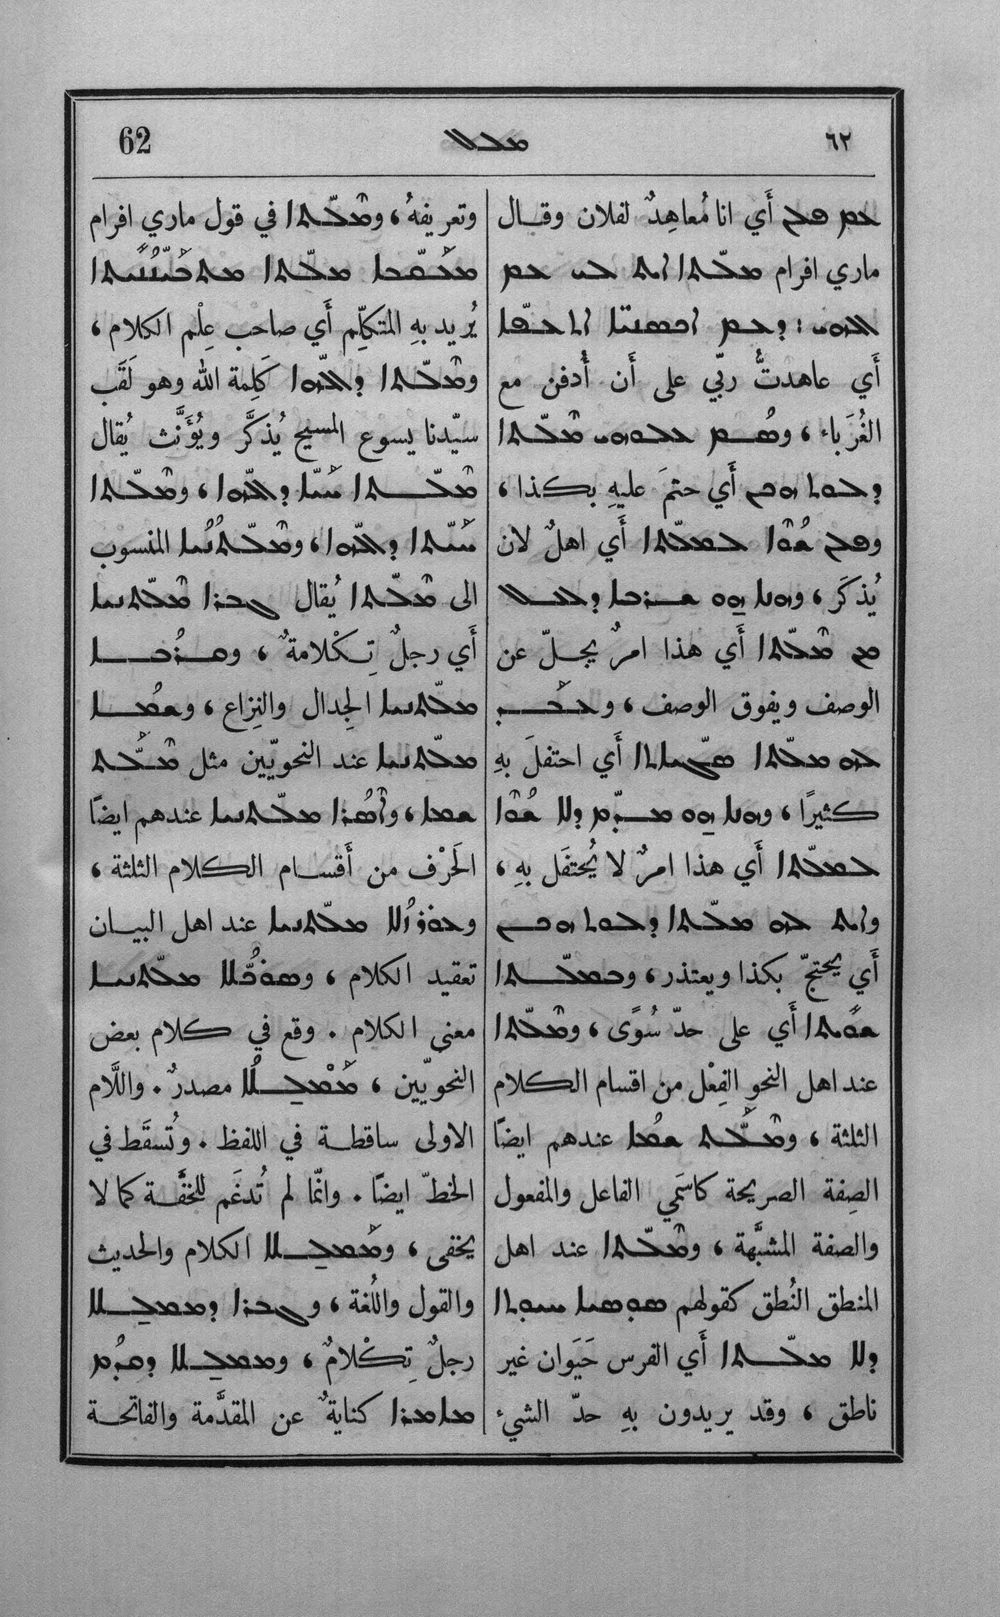 ٦٢ ܡܠܠ 62
ܥܡ ܦܠܢ أَي انا مُعاهِدٌ لفلان وقال
ماري افرام ܡܠܬܐ ܐܝܬ ܠܝ ܥܡ
ܐܠܗܝ : ܕܥܡ ܐܟܣܢܝܐ
أَي عاهدتُّ ربّي على أَن أُدفن مع
الغُرَباء ، وܣܳܡ ܥܠܘܗܝ ܡܠܬܐ
ܕܟܘܬ ܗܟܢ أَي حتمَ عليهِ بكذا ،
وܦܠܢ ܫܘܐ ܠܡܠܬܐ أَي اهلٌ لان
يُذكَر ، وܗܢܐ ܗܘ ܫܪܒܐ ܕܠܥܠ
ܡܢ ܡܠܬܐ أَي هذا امرٌ يجلّ عن
الوصف ويفوق الوصف ، وܥܒܕ
ܠܗ ܡܠܬܐ ܣܓܝܐܬܐ أَي احتفلَ بهِ
كثيرًا ، وܗܢܐ ܗܘ ܡܕܡ ܕܠܐ ܫܘܐ
ܠܡܠܬܐ أَي هذا امرٌ لا يُحتفَل بهِ ،
وܐܝܬ ܠܗ ܡܠܬܐ ܕܟܘܬ ܗܟܢ
أَي يحتجّ بكذا ويعتذر ، وܒܡܠܬܐ
ܫܘܝܬܐ أَي على حدّ سُوًى ، وܡܠܬܐ
عند اهل النحو الفِعْل من اقسام الكلام
الثلثة ، وܡܠܬ ܫܡܐ عندهم ايضًا
الصِفة الصريحة كاسَمي الفاعل والمفعول
والصفة المشبَّهة ، وܡܠܬܐ عند اهل
المنطق النُطق كقولهم ܣܘܣܝܐ ܚܝܘܬܐ
ܕܠܐ ܡܠܬܐ أَي الفرس حَيَوان غير
ناطق ، وقد يريدون بهِ حدّ الشيءِ
وتعريفهُ ، وܡܠܬܐ في قول ماري افرام
ܡܠܬܐ
يُريد بهِ المتكلِّم أَي صاحب عِلْم الكلام ،
وܡܠܬܐ ܕܐܠܗܐ كَلِمة الله وهو لَقَب
سيّدنا يسوع المسيح يُذكَّر ويُؤَنَّث يُقال
ܡܠܬܐ ܚܝܐ ܕܐܠܗܐ ، وܡܠܬܐ
ܚܝܬܐ ܕܐܠܗܐ ، وܡܠܬܢܝܐ المنسوب
الى ܡܠܬܐ يُقال ܓܒܪܐ ܡܠܬܢܝܐ
أَي رجلٌ تِكْلامةٌ ، وܩܪܒܐ
ܡܠܬܢܝܐ الجِدال والنِزاع ، وܫܡܐ
ܡܠܬܢܝܐ عند النحويّين مثل ܡܠܬ
ܫܡܐ ، وܐܣܪܐ ܡܠܬܢܝܐ عندهم ايضًا
الَحرْف من أَقسام الكلام الثلثة ،
ܡܠܬܢܝܐ عند اهل البيان
تعقيد الكلام ، وܣܘܟܠܐ ܡܠܬܢܝܐ
معنى الكلام . وقع في كلام بعض
النحويّين ، ܡܡܠܠܐ مصدرٌ . واللَّام
الاولى ساقطة في اللفظ . وتُسقَط في
الخطّ ايضًا . وانّما لم تُدغَم للخفَّة كما لا
يخفى ، وܡܡܠܠܐ الكلام والحديث
والقول واللُغة ، وܓܒܪܐ ܕܡܡܠܠܐ
رجلٌ تِكْلامٌ ، وܡܡܠܠܐ ܕܩܕܡ
ܡܐܡܪܐ كنايةٌ عن المقدَّمة والفاتحة